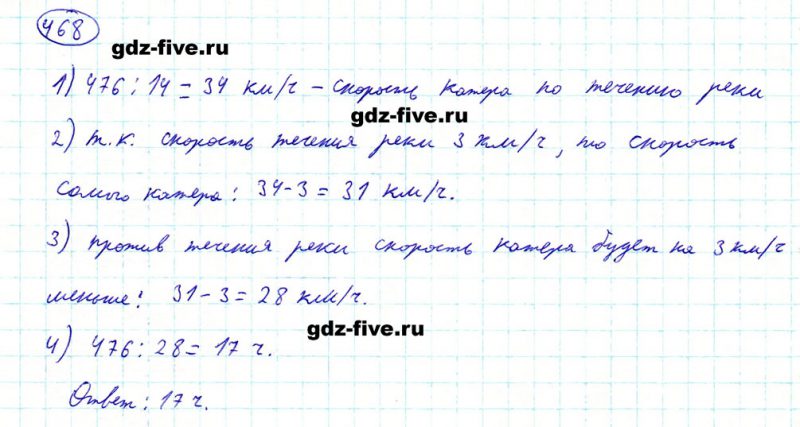 468
gdz-five.ru
1) 476 : 14 = 34 км/ч – скорость катера по течению реки
gdz-five.ru
2) т.к. скорость течения реки 3 км/ч, то скорость
самого катера: 34-3 = 31 км/ч.
3) против течения реки скорость катера будет на 3 км/ч
меньше: 31-3 = 28 км/ч.
gdz-five.ru
4) 476 : 28 = 17 ч.
Ответ: 17 ч.